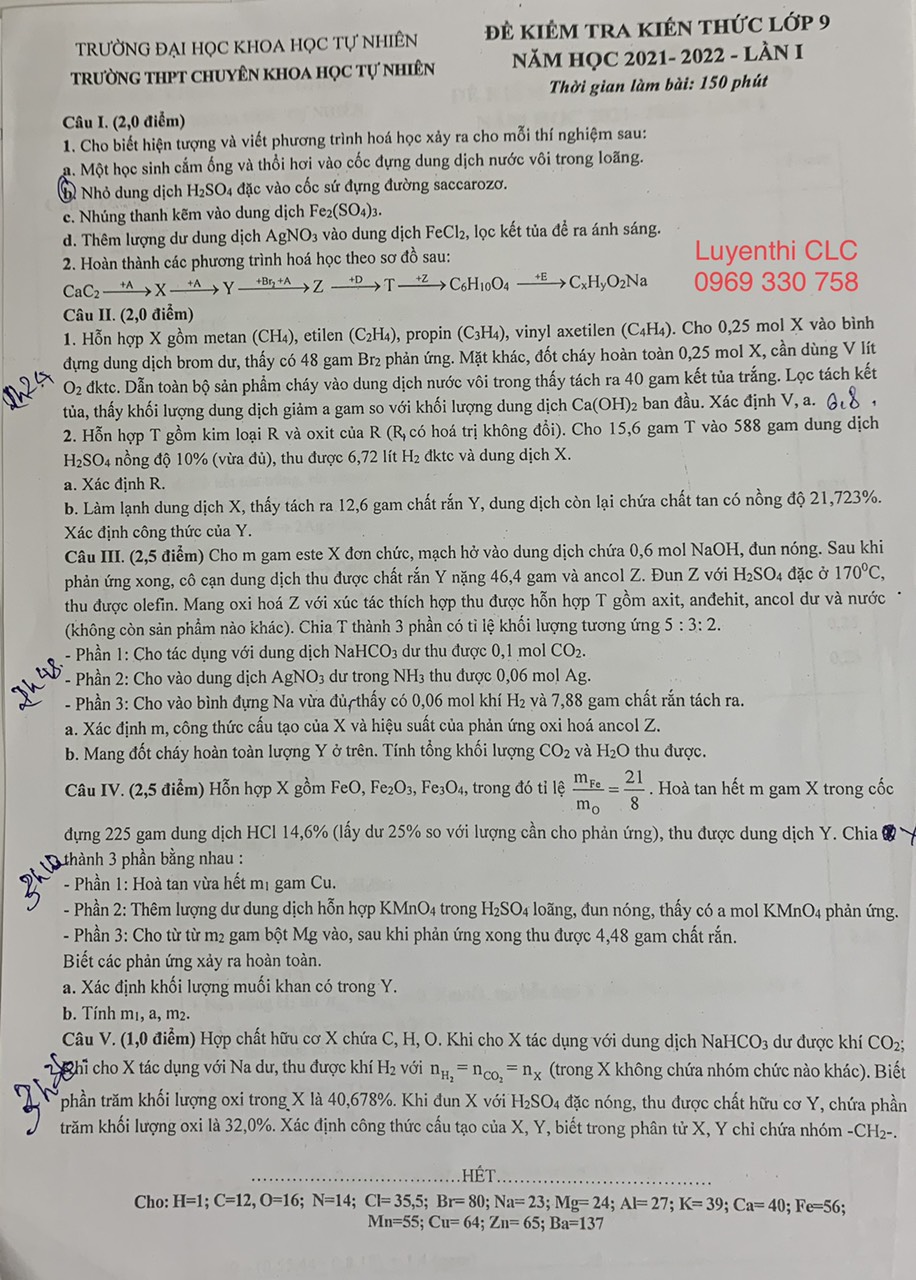 TRƯỜNG ĐẠI HỌC KHOA HỌC TỰ NHIÊN
TRƯỜNG THPT CHUYÊN KHOA HỌC TỰ NHIÊN
ĐỀ KIỂM TRA KIẾN THỨC LỚP 9
NĂM HỌC 2021- 2022 - LẦN I
Thời gian làm bài: 150 phút
Câu I. (2,0 điểm)
1. Cho biết hiện tượng và viết phương trình hoá học xảy ra cho mỗi thí nghiệm sau:
a. Một học sinh cắm ống và thổi hơi vào cốc đựng dung dịch nước vôi trong loãng.
b. Nhỏ dung dịch H₂SO₄ đặc vào cốc sứ đựng đường saccarozơ.
c. Nhúng thanh kẽm vào dung dịch Fe₂(SO₄)₃.
d. Thêm lượng dư dung dịch AgNO₃ vào dung dịch FeCl₂, lọc kết tủa để ra ánh sáng.
2. Hoàn thành các phương trình hoá học theo sơ đồ sau:
Luyenthi CLC
0969 330 758
CaC₂ —+A→ X —+A→ Y —+Br₂+A→ Z —+D→ T —+Z→ C₆H₁₀O₄ —+E→ CₓHᵧO₂Na
Câu II. (2,0 điểm)
1. Hỗn hợp X gồm metan (CH₄), etilen (C₂H₄), propin (C₃H₄), vinyl axetilen (C₄H₄). Cho 0,25 mol X vào bình
đựng dung dịch brom dư, thấy có 48 gam Br₂ phản ứng. Mặt khác, đốt cháy hoàn toàn 0,25 mol X, cần dùng V lít
2h24
O₂ đktc. Dẫn toàn bộ sản phẩm cháy vào dung dịch nước vôi trong thấy tách ra 40 gam kết tủa trắng. Lọc tách kết
tủa, thấy khối lượng dung dịch giảm a gam so với khối lượng dung dịch Ca(OH)₂ ban đầu. Xác định V, a. 6,8
2. Hỗn hợp T gồm kim loại R và oxit của R (R, có hoá trị không đổi). Cho 15,6 gam T vào 588 gam dung dịch
H₂SO₄ nồng độ 10% (vừa đủ), thu được 6,72 lít H₂ đktc và dung dịch X.
a. Xác định R.
b. Làm lạnh dung dịch X, thấy tách ra 12,6 gam chất rắn Y, dung dịch còn lại chứa chất tan có nồng độ 21,723%.
Xác định công thức của Y.
Câu III. (2,5 điểm) Cho m gam este X đơn chức, mạch hở vào dung dịch chứa 0,6 mol NaOH, đun nóng. Sau khi
phản ứng xong, cô cạn dung dịch thu được chất rắn Y nặng 46,4 gam và ancol Z. Đun Z với H₂SO₄ đặc ở 170⁰C,
thu được olefin. Mang oxi hoá Z với xúc tác thích hợp thu được hỗn hợp T gồm axit, anđehit, ancol dư và nước
(không còn sản phẩm nào khác). Chia T thành 3 phần có tỉ lệ khối lượng tương ứng 5 : 3: 2.
- Phần 1: Cho tác dụng với dung dịch NaHCO₃ dư thu được 0,1 mol CO₂.
2h48
- Phần 2: Cho vào dung dịch AgNO₃ dư trong NH₃ thu được 0,06 mol Ag.
- Phần 3: Cho vào bình đựng Na vừa đủ, thấy có 0,06 mol khí H₂ và 7,88 gam chất rắn tách ra.
a. Xác định m, công thức cấu tạo của X và hiệu suất của phản ứng oxi hoá ancol Z.
b. Mang đốt cháy hoàn toàn lượng Y ở trên. Tính tổng khối lượng CO₂ và H₂O thu được.
Câu IV. (2,5 điểm) Hỗn hợp X gồm FeO, Fe₂O₃, Fe₃O₄, trong đó tỉ lệ m_Fe/m_O = 21/8. Hoà tan hết m gam X trong cốc
đựng 225 gam dung dịch HCl 14,6% (lấy dư 25% so với lượng cần cho phản ứng), thu được dung dịch Y. Chia Y
thành 3 phần bằng nhau :
- Phần 1: Hoà tan vừa hết m₁ gam Cu.
- Phần 2: Thêm lượng dư dung dịch hỗn hợp KMnO₄ trong H₂SO₄ loãng, đun nóng, thấy có a mol KMnO₄ phản ứng.
- Phần 3: Cho từ từ m₂ gam bột Mg vào, sau khi phản ứng xong thu được 4,48 gam chất rắn.
Biết các phản ứng xảy ra hoàn toàn.
a. Xác định khối lượng muối khan có trong Y.
b. Tính m₁, a, m₂.
Câu V. (1,0 điểm) Hợp chất hữu cơ X chứa C, H, O. Khi cho X tác dụng với dung dịch NaHCO₃ dư được khí CO₂;
Khi cho X tác dụng với Na dư, thu được khí H₂ với n_H₂ = n_CO₂ = n_X (trong X không chứa nhóm chức nào khác). Biết
phần trăm khối lượng oxi trong X là 40,678%. Khi đun X với H₂SO₄ đặc nóng, thu được chất hữu cơ Y, chứa phần
trăm khối lượng oxi là 32,0%. Xác định công thức cấu tạo của X, Y, biết trong phân tử X, Y chỉ chứa nhóm -CH₂-.
....................................HẾT....................................
Cho: H=1; C=12, O=16; N=14; Cl= 35,5; Br= 80; Na= 23; Mg= 24; Al= 27; K= 39; Ca= 40; Fe=56;
Mn=55; Cu= 64; Zn= 65; Ba=137